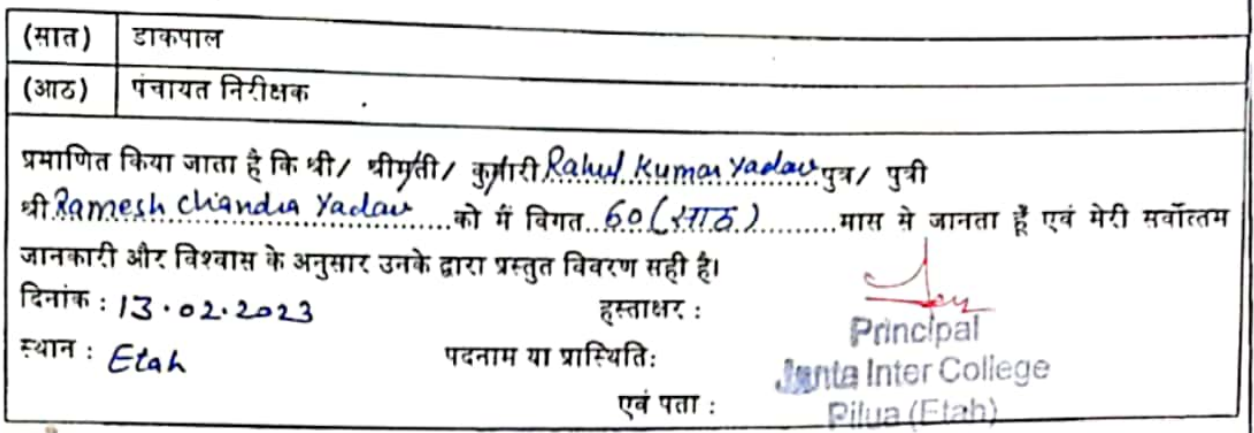 (सात) डाकपाल
(आठ) पंचायत निरीक्षक
प्रमाणित किया जाता है कि श्री/ श्रीमती/ कुमारी Rahul Kumar Yadav पुत्र/ पुत्री
श्री Ramesh Chandra Yadav को मैं विगत 60 (साठ) मास से जानता हूँ एवं मेरी सर्वोत्तम
जानकारी और विश्वास के अनुसार उनके द्वारा प्रस्तुत विवरण सही है।
दिनांक : 13.02.2023 हस्ताक्षर :
Principal
स्थान : Etah पदनाम या प्रास्थिति: Janta Inter College
एवं पता : Pilua (Etah)